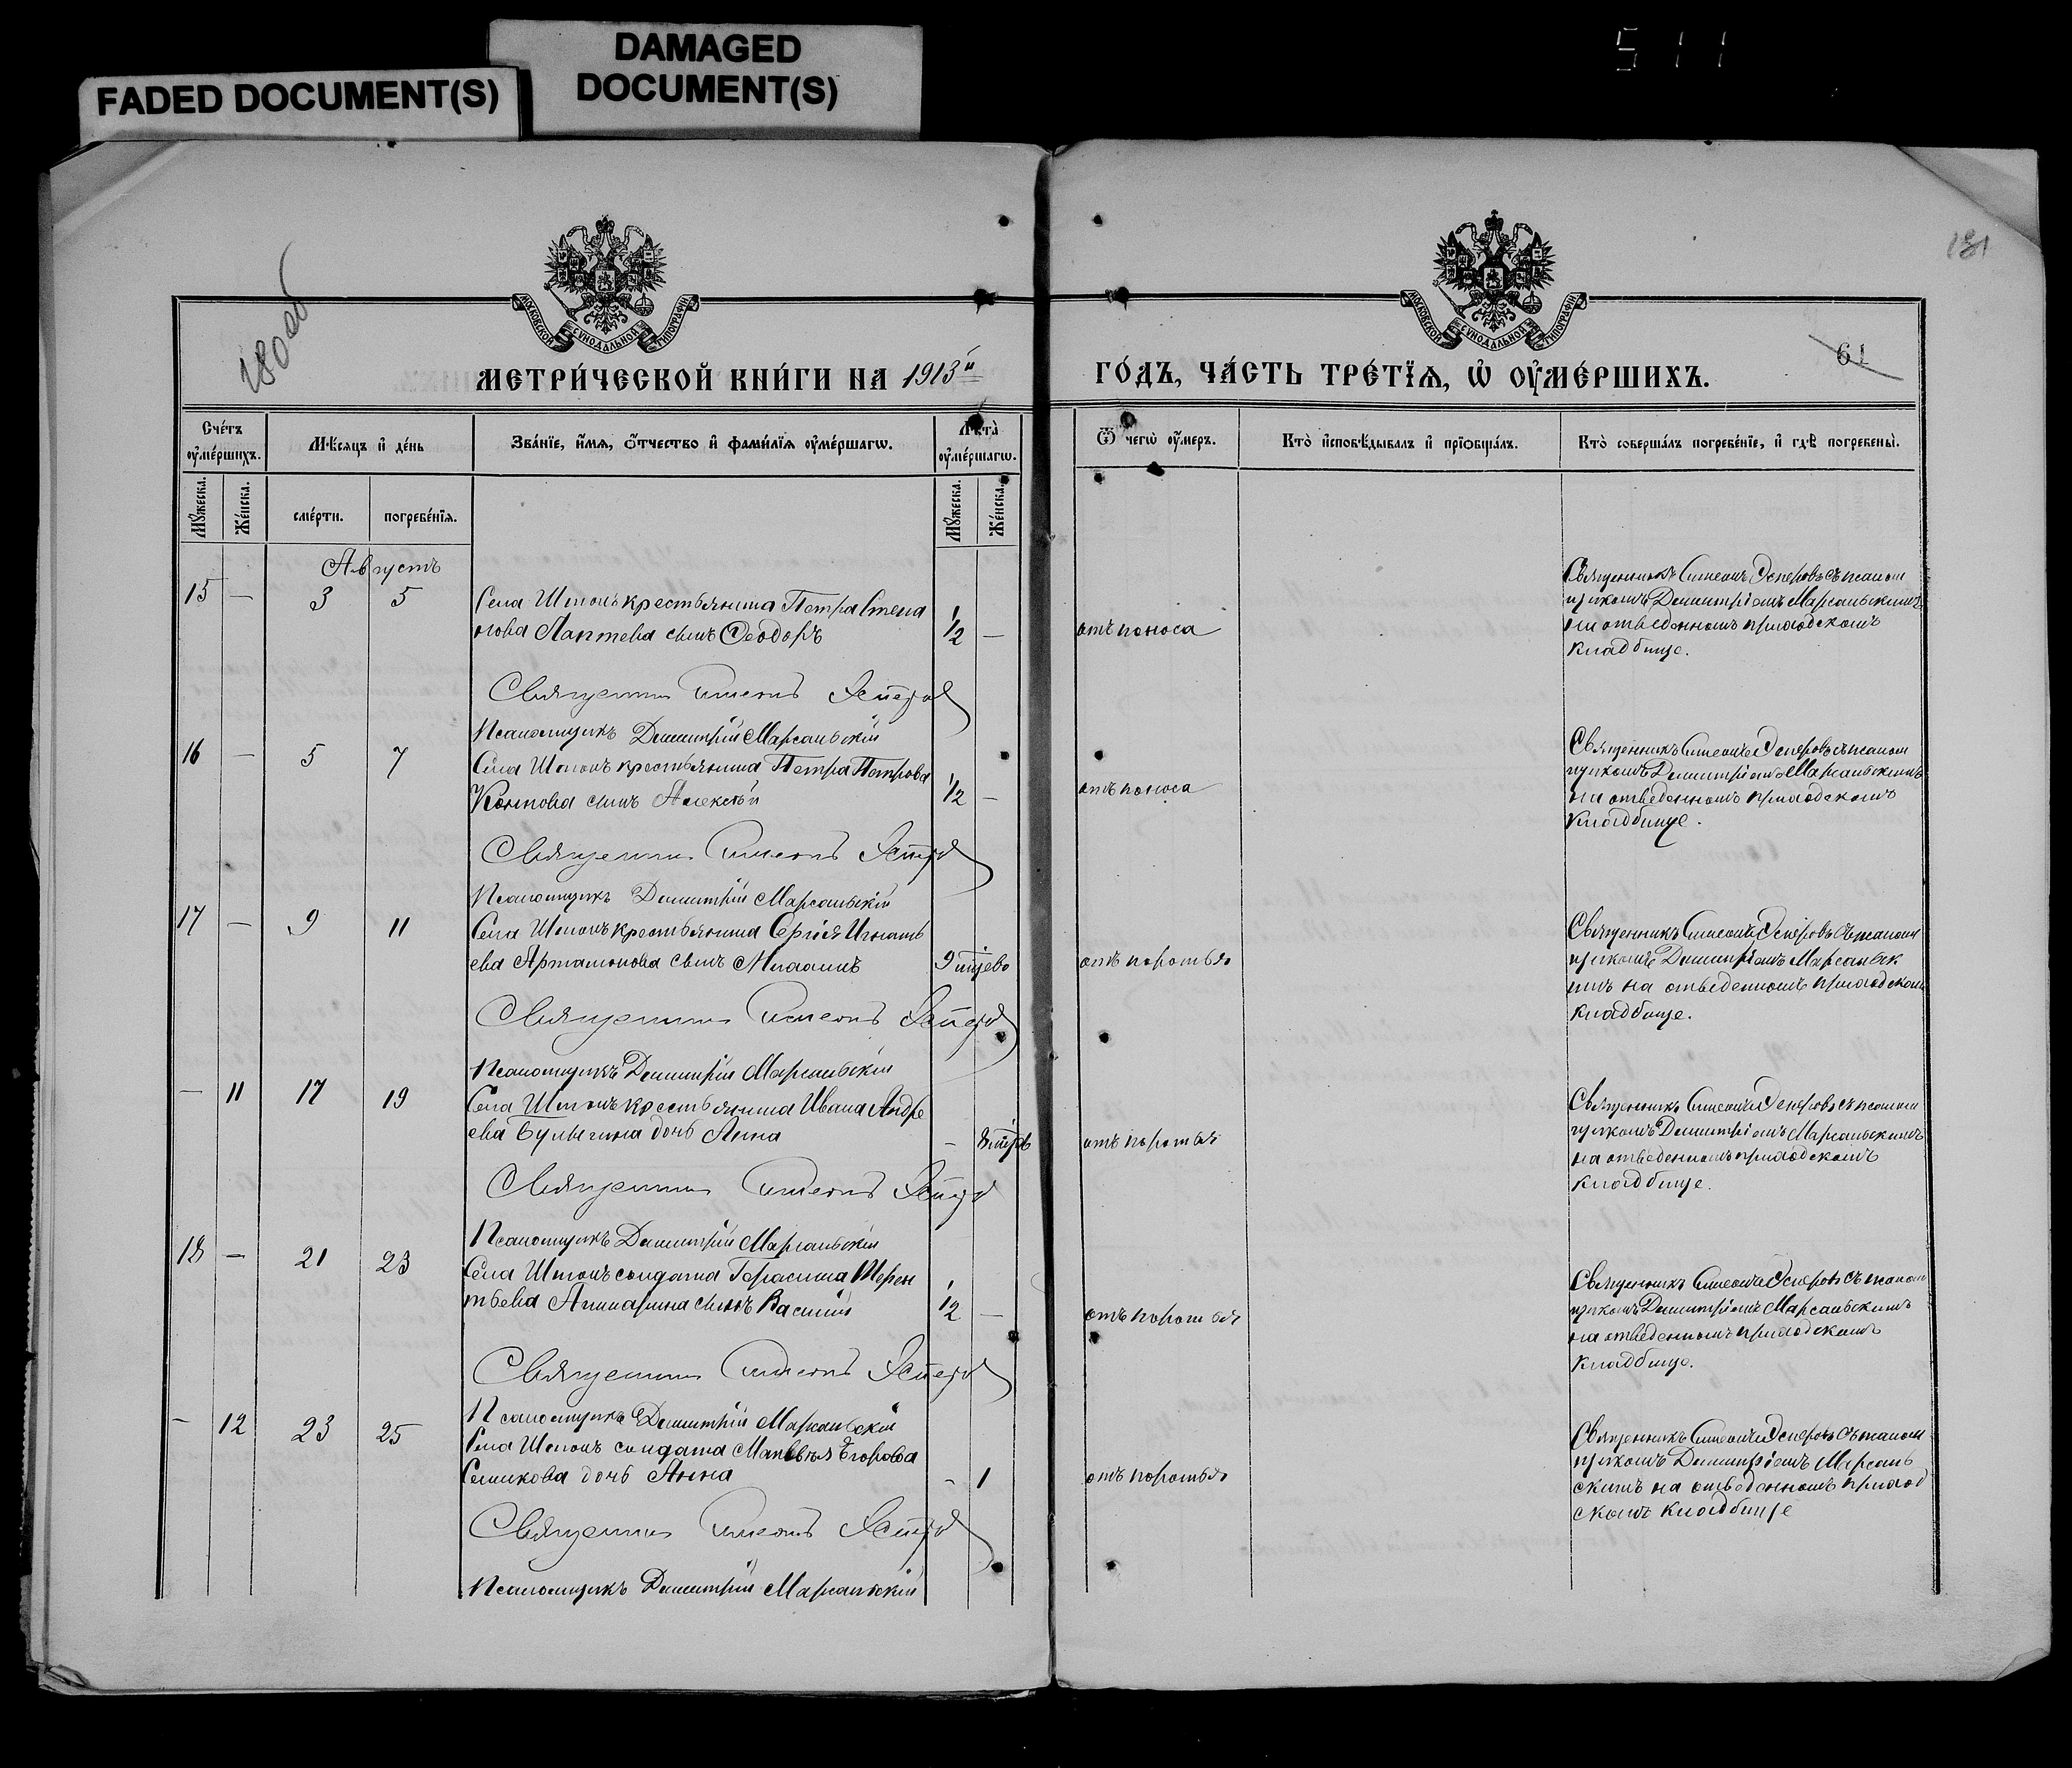 FADED DOCUMENT(S)
DAMAGED
DOCUMENT(S)
511
181
180 об
МОСКОВСКОЙ СУНОДАЛЬНОЙ ТИПОГРАФІИ
МОСКОВСКОЙ СУНОДАЛЬНОЙ ТИПОГРАФІИ
61
МЕТРИ́ЧЕСКОЙ КНИ́ГИ НА 1913й
ГО́ДЪ, ЧА́СТЬ ТРЕ́ТЇѦ, Ѡ҆ ОУ҆МЕ́РШИХЪ.
Сче́тъ оу҆ме́ршихъ.
Мѣ́сяцъ и҆ де́нь
Зва́нїе, и҆́мѧ, ѻ҆́тчество и҆ фами́лїѧ оу҆ме́ршагѡ.
Лѣ́та̀ оу҆ме́ршагѡ.
Ѿ чегѡ̀ оу҆́меръ.
Кто̀ и҆сповѣ́дывалъ и҆ прїѡбща́лъ.
Кто̀ соверша́лъ погребе́нїе, и҆ гдѣ̀ погребены̀.
Мꙋ́жеска.
Же́нска.
сме́рти.
погребе́нїѧ.
Мꙋ́жеска.
Же́нска.
Августъ
15 — 3 5 Села крестьянина Петра Степа
нова Лаптева сынъ Ѳеодоръ 1/2 —
отъ поноса
Священникъ Симеонъ Есперовъ съ псалом
щикомъ Димитріемъ Марсальскимъ
на отведенномъ приходскомъ
кладбище.
Священникъ Симеонъ Есперовъ
Псаломщикъ Димитрій Марсальскій
16 — 5 7 Села крестьянина Петра Петрова
сынъ Алексѣй 1/2 —
отъ поноса
Священникъ Симеонъ Есперовъ съ псалом
щикомъ Димитріемъ Марсальскимъ
на отведенномъ приходскомъ
кладбище.
Священникъ Симеонъ Есперовъ
Псаломщикъ Димитрій Марсальскій
17 — 9 11 Села крестьянина Сергія Игнать
ева Артамонова сынъ Михаилъ 9
отъ коротья
Священникъ Симеонъ Есперовъ съ псалом
щикомъ Димитріемъ Марсальск
имъ на отведенномъ приходском
кладбище.
Священникъ Симеонъ Есперовъ
Псаломщикъ Димитрій Марсальскій
— 11 17 19 Села крестьянина Ивана Андре
ева Булыгина дочь Анна —
отъ коротья
Священникъ Симеонъ Есперовъ съ псалом
щикомъ Димитріемъ Марсальскимъ
на отведенномъ приходскомъ
кладбище.
Священникъ Симеонъ Есперовъ
Псаломщикъ Димитрій Марсальскій
18 — 21 23 Села солдата Герасима Терен
тьева сынъ Василій 1/2 —
отъ коротья
Священникъ Симеонъ Есперовъ съ псалом
щикомъ Димитріемъ Марсальскимъ
на отведенномъ приходскомъ
кладбище.
Священникъ Симеонъ Есперовъ
Псаломщикъ Димитрій Марсальскій
— 12 23 25 Села солдата Матвѣя Егорова
Семикова дочь Анна — 1
отъ коротья
Священникъ Симеонъ Есперовъ съ псалом
щикомъ Димитріемъ Марсаль
скимъ на отведенномъ приход
скомъ кладбище
Священникъ Симеонъ Есперовъ
Псаломщикъ Димитрій Марсальскій